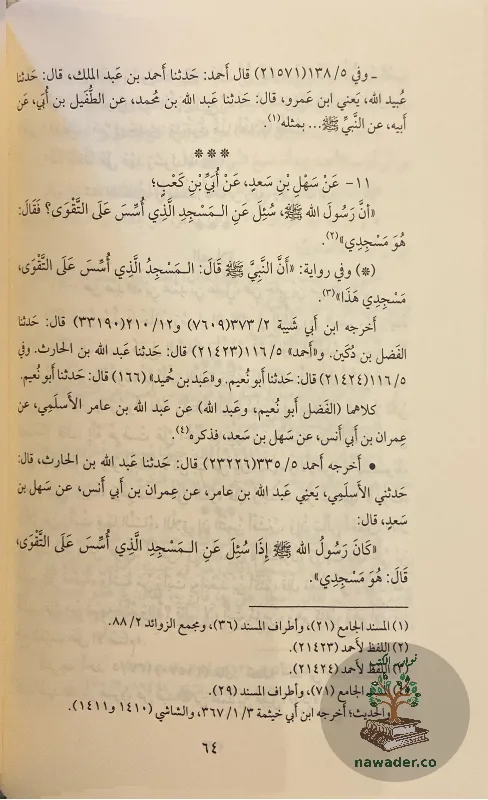 ـ وفي ٥/ ١٣٨(٢١٥٧١) قال أحمد: حَدثنا أحمد بن عَبد الملك، قال: حَدثنا
عُبيد الله، يَعني ابن عَمرو، قال: حَدثنا عَبد الله بن مُحمد، عن الطُّفَيل بن أُبَي، عَن
أبيه، عن النَّبيِّ ﷺ... بمثله(١).
* * *
١١- عَنْ سَهْلِ بْنِ سَعدٍ، عَنْ أُبَيِّ بْنِ كَعْبٍ؛
«أنَّ رَسُولَ الله ﷺ، سُئِلَ عَنِ الـمَسْجِدِ الَّذِي أُسِّسَ عَلَى التَّقْوَى؟ فَقَالَ:
هُوَ مَسْجِدِي»(٢).
(*) وفي رواية: «أَنَّ النَّبِيَّ ﷺ قَالَ: الـمَسْجِدُ الَّذِي أُسِّسَ عَلَى التَّقْوَى،
مَسْجِدِي هَذَا»(٣).
أخرجه ابن أبي شَيبة ٢/ ٣٧٣(٧٦٠٩) و١٢/ ٢١٠(٣٣١٩٠) قال: حَدثنا
الفَضل بن دُكَين. و«أحمد» ٥/ ١١٦(٢١٤٢٣) قال: حَدثنا عَبد الله بن الحارث. وفي
٥/ ١١٦(٢١٤٢٤) قال: حَدثنا أبو نُعيم. و«عَبد بن حُميد» (١٦٦) قال: حَدثنا أبو نُعيم.
كلاهما (الفَضل أبو نُعيم، وعَبد الله) عن عَبد الله بن عامر الأَسلَمي، عن
عِمران بن أبي أنس، عن سَهل بن سَعد، فذكره(٤).
• أخرجه أحمد ٥/ ٣٣٥(٢٣٢٢٦) قال: حَدثنا عَبد الله بن الحارث، قال:
حَدثني الأَسلَمي، يَعني عَبد الله بن عامر، عن عِمران بن أبي أنس، عن سَهل بن
سَعد، قال:
«كَانَ رَسُولُ الله ﷺ إِذَا سُئِلَ عَنِ الـمَسْجِدِ الَّذِي أُسِّسَ عَلَى التَّقْوَى،
قَالَ: هُوَ مَسْجِدِي».
(١) المسند الجامع (٢١)، وأطراف المسند (٣٦)، ومجمع الزوائد ٢/ ٨٨.
(٢) اللفظ لأحمد (٢١٤٢٣).
(٣) اللفظ لأحمد (٢١٤٢٤).
الجامع (٧١)، وأطراف المسند (٢٩).
والحديث؛ أخرجه ابن أبي خيثمة ٣/ ١/ ٣٦٧، والشاشي (١٤١٠ و١٤١١).
٦٤
نوادر الكتب
nawader.co